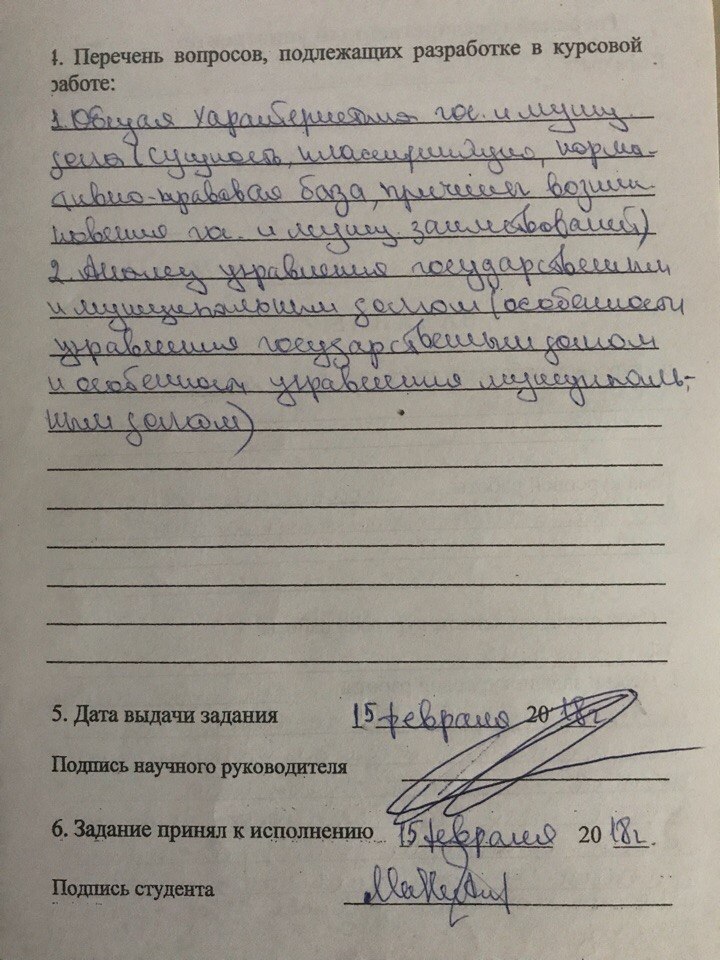 4. Перечень вопросов, подлежащих разработке в курсовой
работе:
1. Общая характеристика гос. и муниц.
долга (сущность, классификация, норма-
тивно-правовая база, причины возник-
новения гос. и муниц. заимствований)
2. Анализ управления государственным
и муниципальным долгом (особенности
управления государственным долгом
и особенности управления муниципаль-
ным долгом)
5. Дата выдачи задания 15 февраля 2018г.
Подпись научного руководителя
6. Задание принял к исполнению 15 февраля 2018г.
Подпись студента